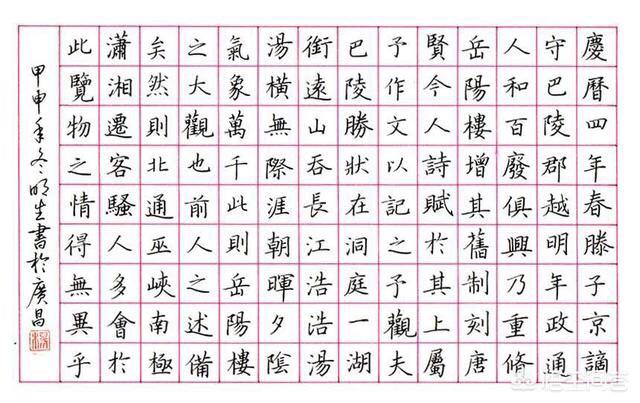 慶曆四年春滕子京謫
守巴陵郡越明年政通
人和百廢俱興乃重修
岳陽樓增其舊制刻唐
賢今人詩賦於其上屬
予作文以記之予觀夫
巴陵勝狀在洞庭一湖
銜遠山吞長江浩浩湯
湯橫無際涯朝暉夕陰
氣象萬千此則岳陽樓
之大觀也前人之述備
矣然則北通巫峽南極
瀟湘遷客騷人多會於
此覽物之情得無異乎
甲申年冬明生書於廣昌
悟空问答